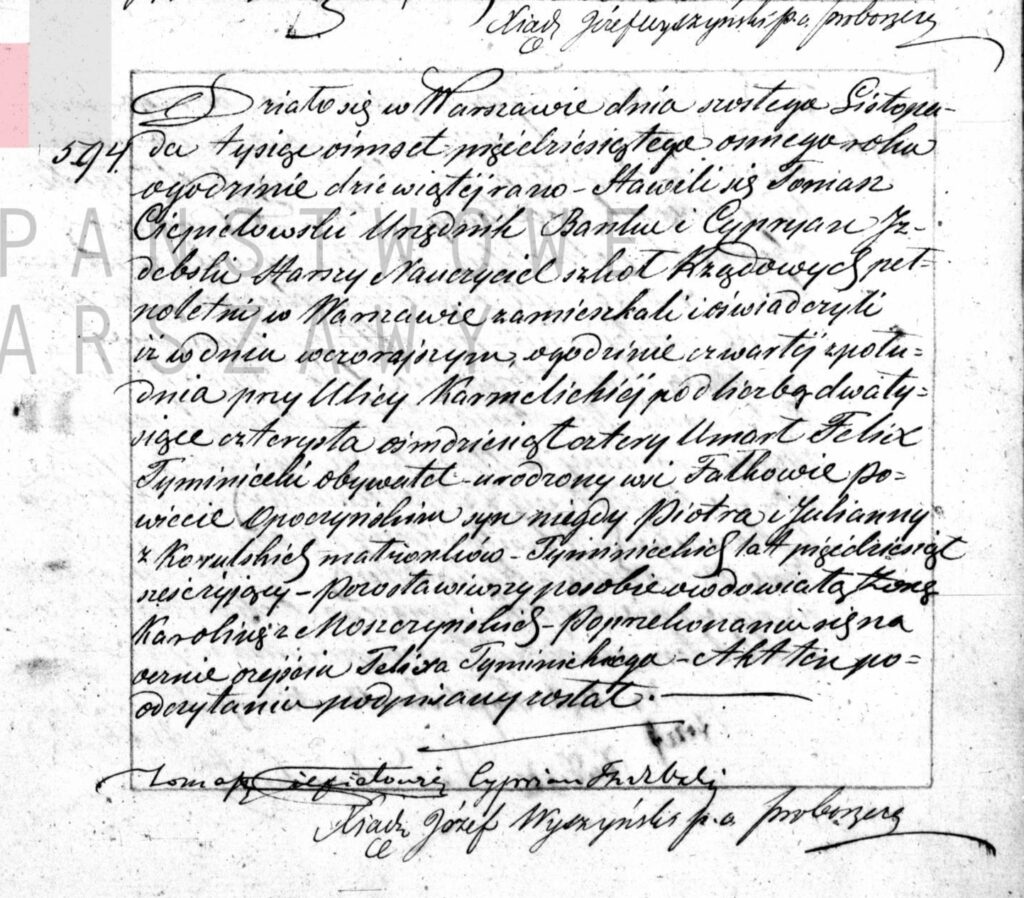 Xiądz Józef Wyszyński p.o. proboszcza
Działo się w Warszawie dnia szóstego Listopa-
594. da tysiąc ośmset pięćdziesiątego ósmego roku
o godzinie dziewiątéj rano – Stawili się Tomasz
Ciepielowski Urzędnik Banku i Cypryan Iz-
debski Starszy Nauczyciel szkół Rządowych peł-
noletni w Warszawie zamieszkali i oświadczyli
iż w dniu wczorajszym, o godzinie czwartéj z połu-
dnia przy Ulicy Karmelickiéj pod liczbą dwa ty-
siące czterysta ośmdziesiąt cztery Umarł Felix
Tyminiecki obywatel – urodzony w wsi Fałkowie po-
wiecie Opoczyńskim syn niegdy Piotra i Julianny
z małżonków – Tyminieckich lat pięćdziesiąt
sześć żyjący – Pozostawiwszy po sobie owdowiałą Żonę
Karolinę z Moszczyńskich – Po przekonaniu się na
ocznie o zejściu Felixa Tyminieckiego – Akt ten po-
odczytaniu podpisany został. –
Tomasz Ciepielowski Cyprian Izdebski
Xiądz Józef Wyszyński p.o. proboszcza
PAŃSTWOWE
ARSZAWY